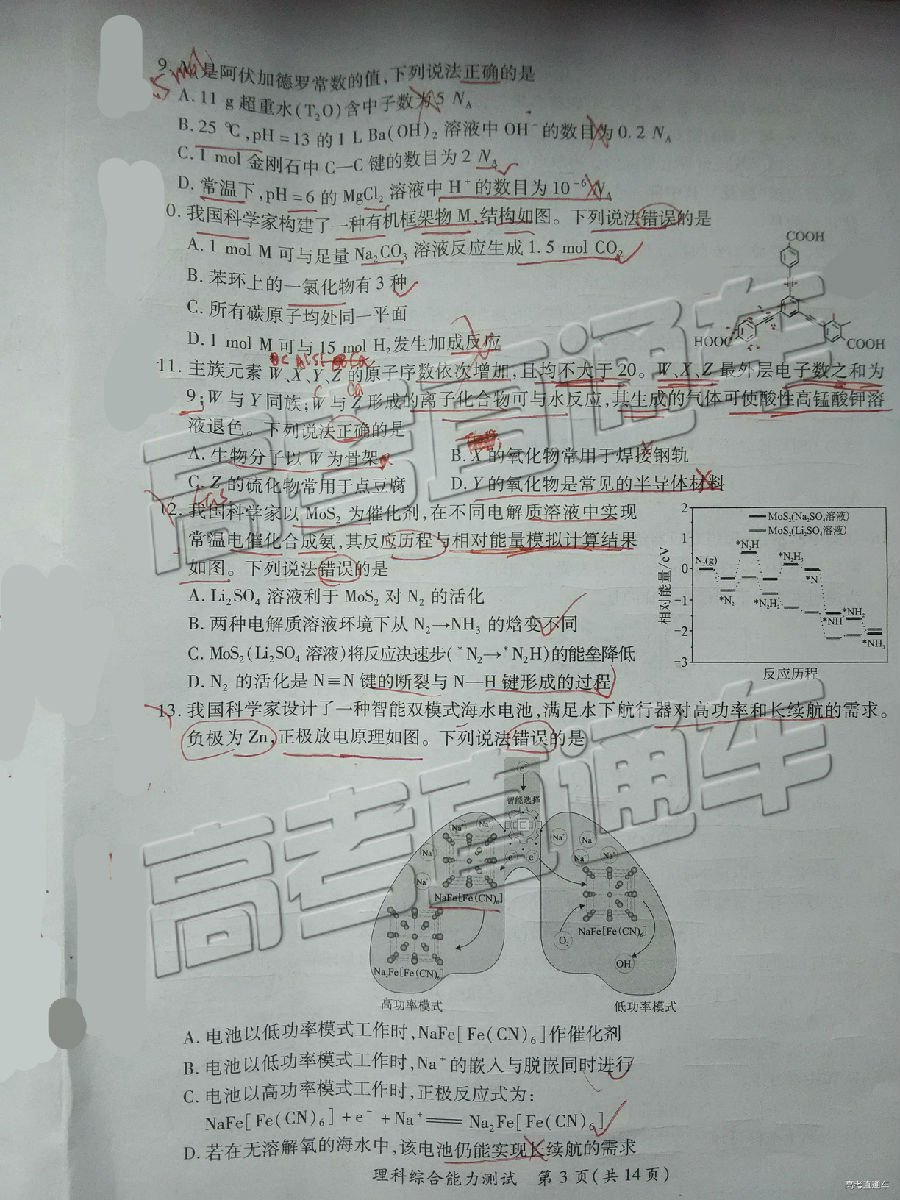 9. N_A 是阿伏加德罗常数的值,下列说法正确的是
A. 11 g 超重水(T₂O)含中子数为 5 N_A
B. 25 ℃,pH=13 的 1 L Ba(OH)₂ 溶液中 OH⁻ 的数目为 0.2 N_A
C. 1 mol 金刚石中 C—C 键的数目为 2 N_A
D. 常温下,pH=6 的 MgCl₂ 溶液中 H⁺ 的数目为 10⁻⁶ N_A
0. 我国科学家构建了一种有机框架物 M,结构如图。下列说法错误的是
A. 1 mol M 可与足量 Na₂CO₃ 溶液反应生成 1.5 mol CO₂
B. 苯环上的一氯化物有 3 种
C. 所有碳原子均处同一平面
D. 1 mol M 可与 15 mol H₂发生加成反应
COOH
HOOC
COOH
11. 主族元素 W、X、Y、Z 的原子序数依次增加,且均不大于 20。W、X、Z 最外层电子数之和为
9;W 与 Y 同族;W 与 Z 形成的离子化合物可与水反应,其生成的气体可使酸性高锰酸钾溶
液退色。下列说法正确的是
A. 生物分子以 W 为骨架
B. X 的氧化物常用于焊接钢轨
C. Z 的硫化物常用于点豆腐
D. Y 的氧化物是常见的半导体材料
12. 我国科学家以 MoS₂ 为催化剂,在不同电解质溶液中实现
常温电催化合成氨,其反应历程与相对能量模拟计算结果
如图。下列说法错误的是
A. Li₂SO₄ 溶液利于 MoS₂ 对 N₂ 的活化
B. 两种电解质溶液环境下从 N₂→NH₃ 的焓变不同
C. MoS₂(Li₂SO₄ 溶液)将反应决速步(*N₂→*N₂H)的能垒降低
D. N₂ 的活化是 N≡N 键的断裂与 N—H 键形成的过程
MoS₂(Na₂SO₄溶液)
MoS₂(Li₂SO₄溶液)
相对能量/eV
2
1
0
−1
−2
−3
N₂(g)
*N₂
*N₂H
*N₂H₂
*N₂H₃
*N
*NH
*NH₂
*NH₃
反应历程
13. 我国科学家设计了一种智能双模式海水电池,满足水下航行器对高功率和长续航的需求。
负极为 Zn,正极放电原理如图。下列说法错误的是
智能选择
Na⁺
Na⁺
Na⁺
Na⁺
e⁻
e⁻
Na⁺
Na⁺
Na⁺
Na⁺
NaFe[Fe(CN)₆]
Na₂Fe[Fe(CN)₆]
NaFe[Fe(CN)₆]
O₂
OH⁻
高功率模式
低功率模式
A. 电池以低功率模式工作时,NaFe[Fe(CN)₆]作催化剂
B. 电池以低功率模式工作时,Na⁺的嵌入与脱嵌同时进行
C. 电池以高功率模式工作时,正极反应式为:
NaFe[Fe(CN)₆]+e⁻+Na⁺══Na₂Fe[Fe(CN)₆]
D. 若在无溶解氧的海水中,该电池仍能实现长续航的需求
理科综合能力测试 第 3 页(共 14 页)
高考直通车
高考直通车
高考直通车